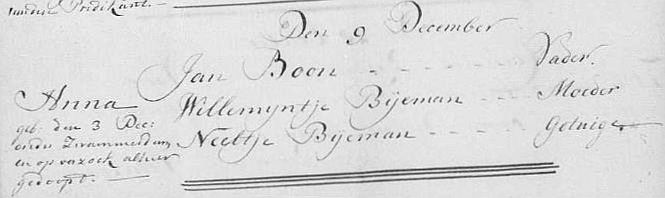 Predikant.
Den 9 December
Jan Boon - - - - Vader.
Anna
geb: den 3 Dec:
onder Zwammerdam
en op verzoek alhier
gedoopt.
Willemyntje Byeman - - - Moeder
Neeltje Byeman - - - - Getuige